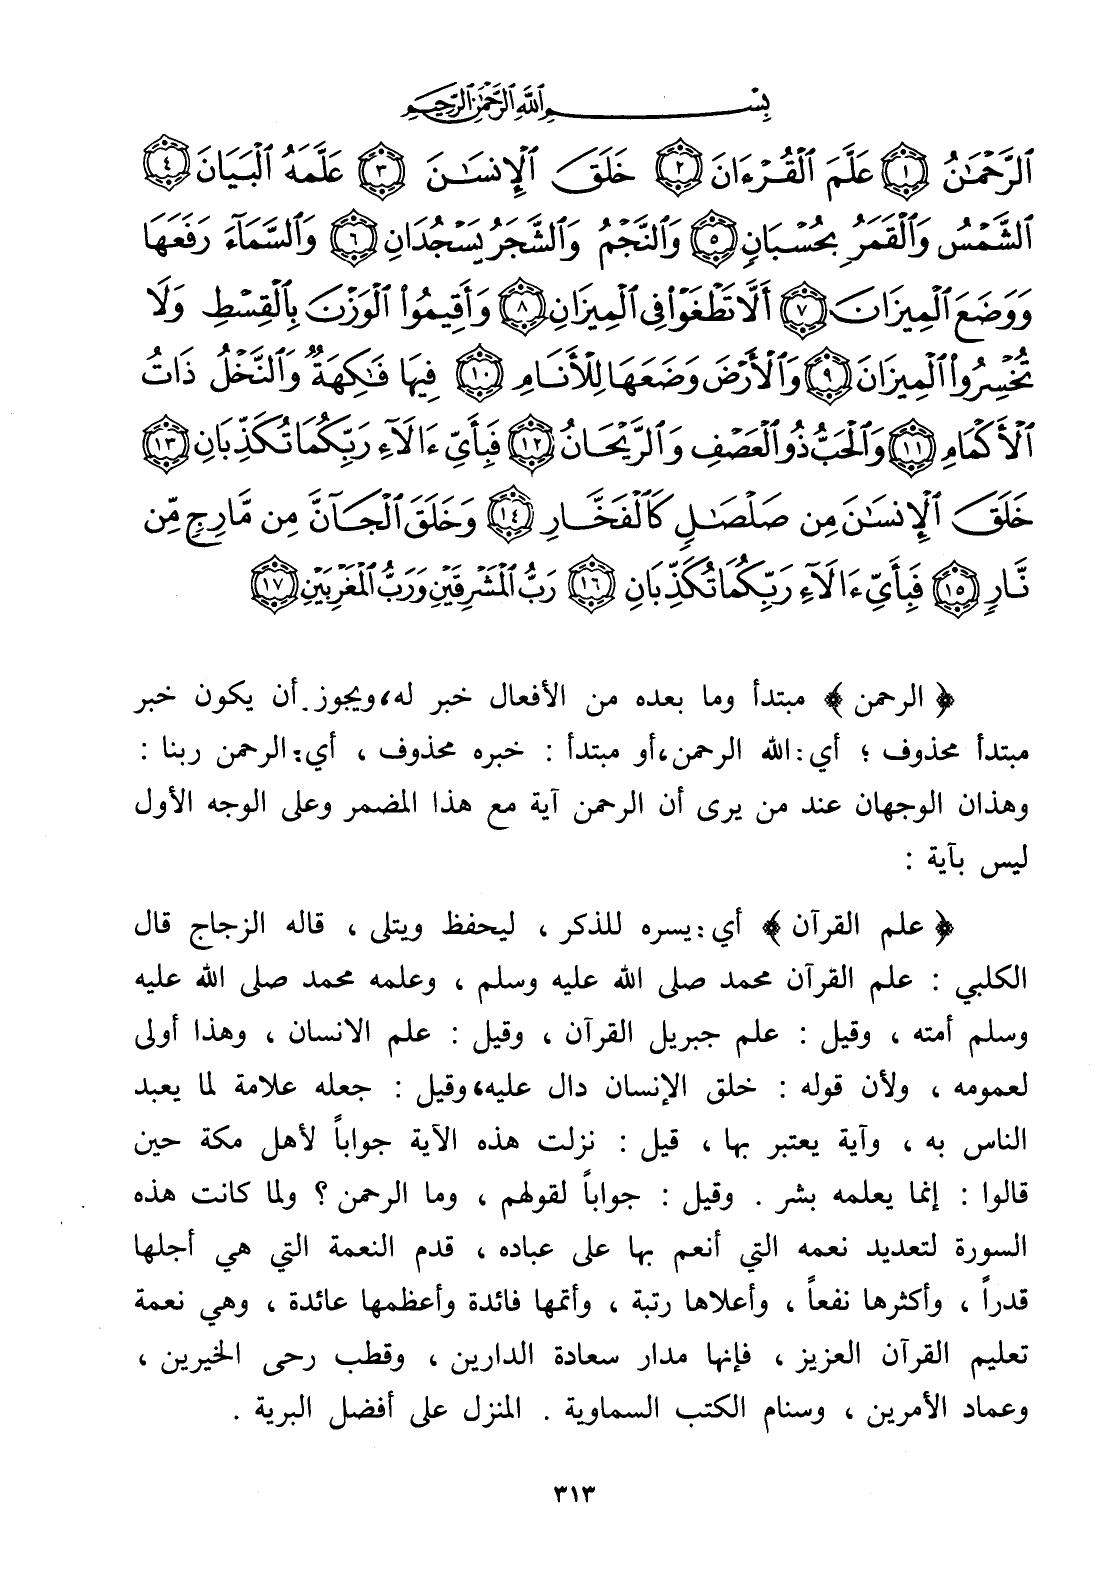 بِسْمِ ٱللَّهِ ٱلرَّحْمَٰنِ ٱلرَّحِيمِ
ٱلرَّحْمَٰنُ ﴿١﴾ عَلَّمَ ٱلْقُرْءَانَ ﴿٢﴾ خَلَقَ ٱلْإِنسَٰنَ ﴿٣﴾ عَلَّمَهُ ٱلْبَيَانَ ﴿٤﴾
ٱلشَّمْسُ وَٱلْقَمَرُ بِحُسْبَانٍ ﴿٥﴾ وَٱلنَّجْمُ وَٱلشَّجَرُ يَسْجُدَانِ ﴿٦﴾ وَٱلسَّمَآءَ رَفَعَهَا
وَوَضَعَ ٱلْمِيزَانَ ﴿٧﴾ أَلَّا تَطْغَوْا۟ فِى ٱلْمِيزَانِ ﴿٨﴾ وَأَقِيمُوا۟ ٱلْوَزْنَ بِٱلْقِسْطِ وَلَا
تُخْسِرُوا۟ ٱلْمِيزَانَ ﴿٩﴾ وَٱلْأَرْضَ وَضَعَهَا لِلْأَنَامِ ﴿١٠﴾ فِيهَا فَٰكِهَةٌ وَٱلنَّخْلُ ذَاتُ
ٱلْأَكْمَامِ ﴿١١﴾ وَٱلْحَبُّ ذُو ٱلْعَصْفِ وَٱلرَّيْحَانُ ﴿١٢﴾ فَبِأَىِّ ءَالَآءِ رَبِّكُمَا تُكَذِّبَانِ ﴿١٣﴾
خَلَقَ ٱلْإِنسَٰنَ مِن صَلْصَٰلٍ كَٱلْفَخَّارِ ﴿١٤﴾ وَخَلَقَ ٱلْجَآنَّ مِن مَّارِجٍ مِّن
نَّارٍ ﴿١٥﴾ فَبِأَىِّ ءَالَآءِ رَبِّكُمَا تُكَذِّبَانِ ﴿١٦﴾ رَبُّ ٱلْمَشْرِقَيْنِ وَرَبُّ ٱلْمَغْرِبَيْنِ ﴿١٧﴾
﴿ الرحمن ﴾ مبتدأ وما بعده من الأفعال خبر له، ويجوز أن يكون خبر
مبتدأ محذوف ؛ أي: الله الرحمن، أو مبتدأ : خبره محذوف ، أي: الرحمن ربنا :
وهذان الوجهان عند من يرى أن الرحمن آية مع هذا المضمر وعلى الوجه الأول
ليس بآية :
﴿ علم القرآن ﴾ أي: يسره للذكر ، ليحفظ ويتلى ، قاله الزجاج قال
الكلبي : علم القرآن محمد صلى الله عليه وسلم ، وعلمه محمد صلى الله عليه
وسلم أمته ، وقيل : علم جبريل القرآن ، وقيل : علم الانسان ، وهذا أولى
لعمومه ، ولأن قوله : خلق الإنسان دال عليه، وقيل : جعله علامة لما يعبد
الناس به ، وآية يعتبر بها ، قيل : نزلت هذه الآية جواباً لأهل مكة حين
قالوا : إنما يعلمه بشر . وقيل : جواباً لقولهم ، وما الرحمن ؟ ولما كانت هذه
السورة لتعديد نعمه التي أنعم بها على عباده ، قدم النعمة التي هي أجلها
قدراً ، وأكثرها نفعاً ، وأعلاها رتبة ، وأتمها فائدة وأعظمها عائدة ، وهي نعمة
تعليم القرآن العزيز ، فإنها مدار سعادة الدارين ، وقطب رحى الخيرين ،
وعماد الأمرين ، وسنام الكتب السماوية . المنزل على أفضل البرية .
٣١٣